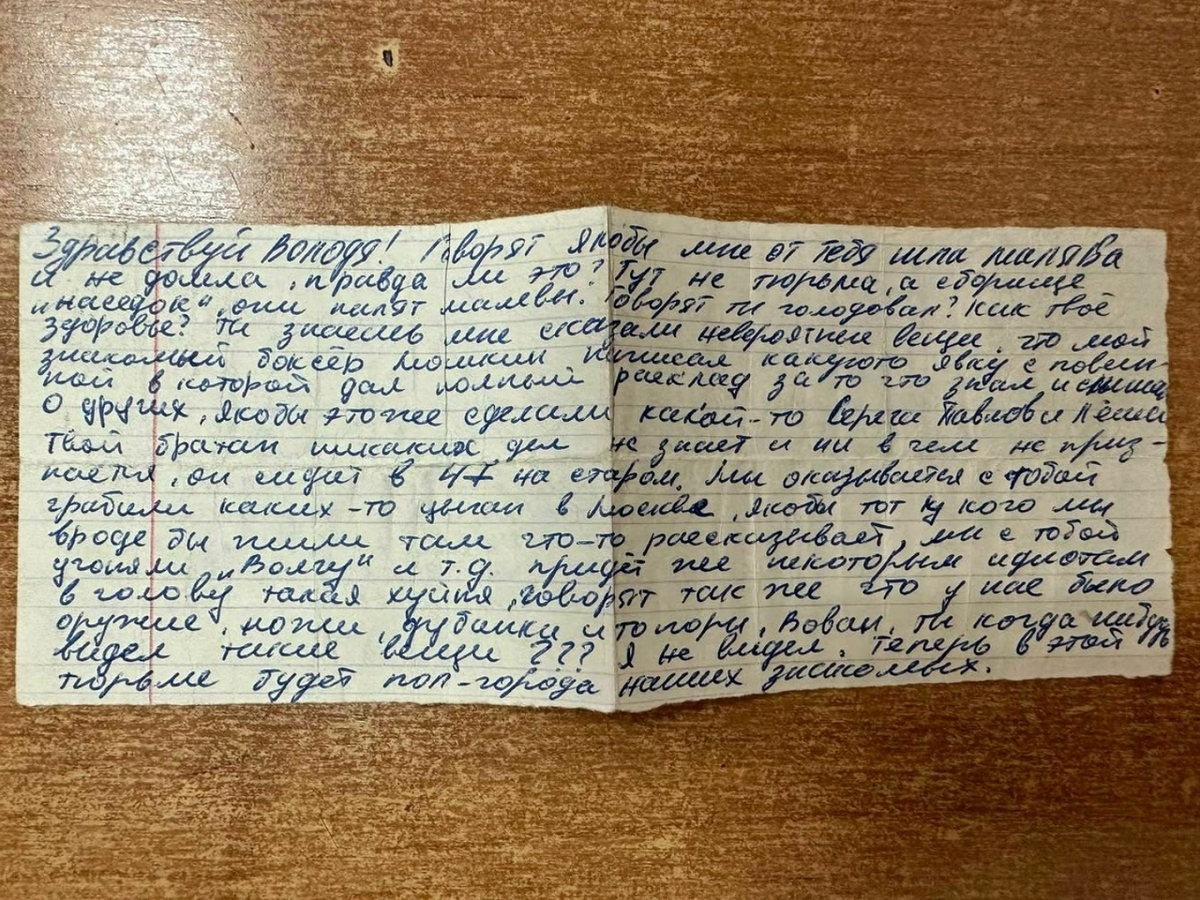 Здравствуй Володя! Говорят якобы мне от тебя шла малява
и не дошла, правда ли это? Тут не тюрьма, а сборище
„наседок“, они палят малявы. Говорят ты голодовал? Как твоё
здоровье? Ты знаешь мне сказали невероятные вещи, что мой
знакомый боксёр написал какуюто явку с повин-
ной в которой дал полный расклад за то что знал и слышал
о других, якобы этоже сделали какой-то Серёга Павлов и Лёша
твой братан никаких дел не знает и ни в чем не приз-
нается, он сидит в 47 на старом. Мы оказывается с тобой
грабили каких-то цыган в Москве, якобы тот у кого мы
вроде бы жили там что-то рассказывает, мы с тобой
угоняли „Волгу“ и т.д. придёт же некоторым идиотам
в голову такая хуйня, говорят так же что у нас было
оружие, ножи, дубинки и топоры, Вован, ты когда нибудь
видел такие вещи ??? Я не видел. Теперь в этой
тюрьме будет пол-города наших знакомых.